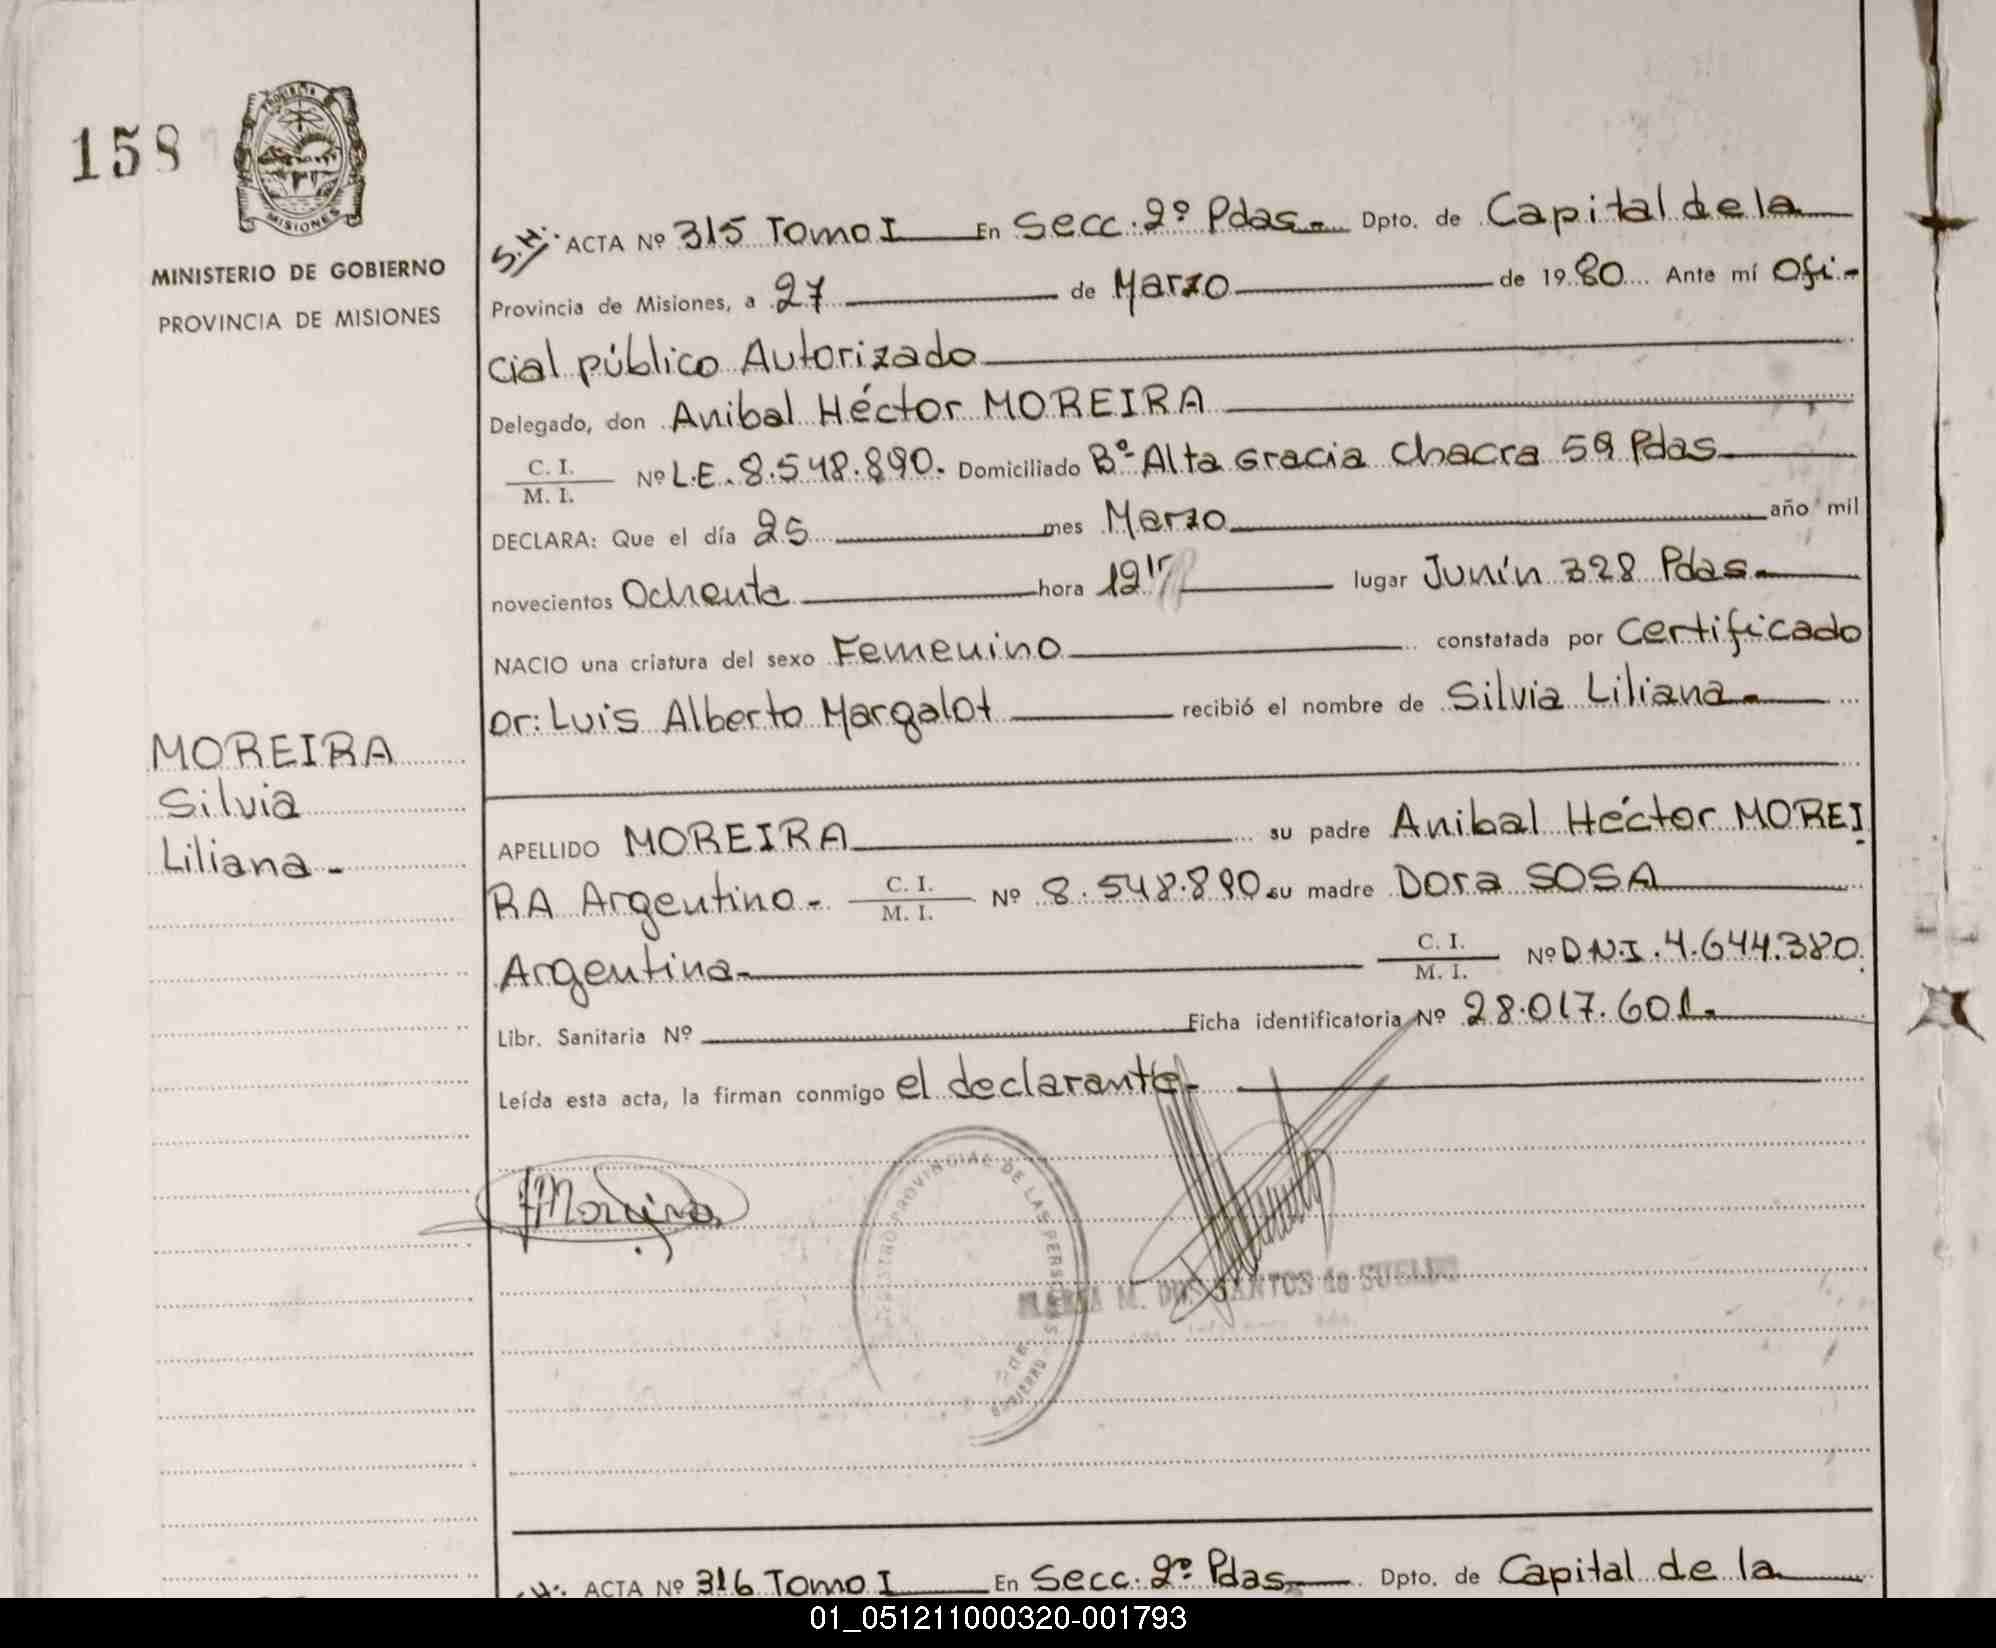 158
PROVINCIA
MISIONES
MINISTERIO DE GOBIERNO
PROVINCIA DE MISIONES
S.H: ACTA Nº 315 Tomo I En Secc. 2º Pdas. Dpto. de Capital de la
Provincia de Misiones, a 27 de Marzo de 19 80 Ante mí Ofi-
cial público Autorizado
Delegado, don Anibal Héctor MOREIRA
C. I.
M. I.
Nº L.E. 8.548.890. Domiciliado Bº Alta Gracia Chacra 59 Pdas
DECLARA: Que el día 25 mes Marzo año mil
novecientos Ochenta hora lugar Junín 328 Pdas.
NACIO una criatura del sexo Femenino constatada por Certificado
Dr: Luis Alberto Margalot recibió el nombre de Silvia Liliana.
MOREIRA
Silvia
Liliana-
APELLIDO MOREIRA su padre Anibal Héctor MOREI
RA Argentino- C. I. M. I. Nº 8.548.890 su madre Dora SOSA
Argentina- C. I. M. I. Nº D.N.I. 4.644.380.
Libr. Sanitaria Nº Ficha identificatoria Nº 28.017.601.
Leída esta acta, la firman conmigo el declarante-
Moreira
PROVINCIAL DE LAS PERSONAS
M. DOS SANTOS de
ACTA Nº 316 Tomo I En Secc. 2º Pdas. Dpto. de Capital de la
01_051211000320-001793